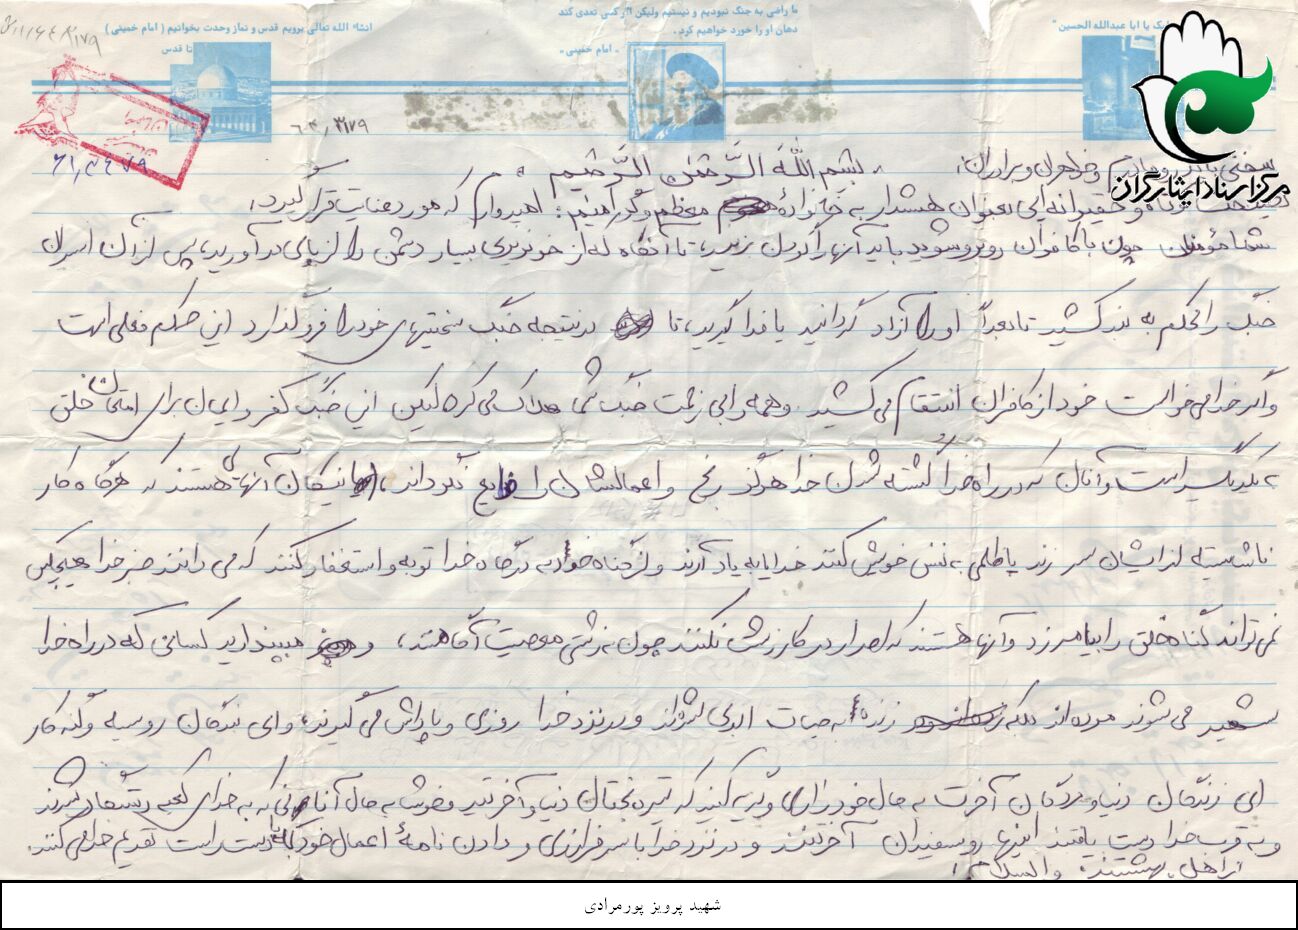 ما راضی به جنگ نبودیم و نیستیم ولیکن اگر کسی تعدی کند
دهان او را خورد خواهیم کرد.
« امام خمینی »
انشاء الله تعالی برویم قدس و نماز وحدت بخوانیم ( امام خمینی )
تا قدس
لبیک یا ابا عبدالله الحسین
مرکز اسناد ایثارگران
۶۱٫۳۴۷۹
بسم الله الرحمن الرحیم
سخنی با پدر و مادرم و خواهران و برادران.
و حقیرانه ایی بعنوان هشدار به خانوادهٔ معظم و گرامیم: امیدوارم که مورد عنایت قرار گیرد.
شما مؤمنان چون با کافران روبرو شوید باید آنها را گردن زنید، تا آنگاه که از خونریزی بسیار دشمن را از پای درآورید، پس از آن اسیران
جنگ را محکم به بند کشید تا بعداً او را آزاد گردانید یا فدا گیرید، تا در نتیجه جنگ سختیهای خود را فرو گذارد این حکم فعلی است
و اگر خدا می خواست خود از کافران انتقام می کشید و همه را بی زحمت جنگ شما هلاک می کرد لیکن این جنگ کفر و ایمان برای امتحان خلق
به یکدیگر است و آنان که در راه خدا کشته شدن خدا هرگز رنج و اعمالشان را ضایع نگرداند، نیکان آنهایی هستند که هرگاه کار
ناشایسته از ایشان سر زند یا ظلمی به نفس خویش کنند خدا را به یاد آرند و از گناه خود به درگاه خدا توبه و استغفار کنند که می دانند جز خدا هیچکس
نمی تواند گناه خلق را بیامرزد و آنها هستند که اصرار در کار زشت نکنند چون به زشتی معصیت آگاهند، و مپندارید کسانی که در راه خدا
شهید می شوند مرده اند بلکه زنده به حیات ابدی شده اند و در نزد خدا روزی و پاداش می گیرند، وای بندگان روسیه و گنه کار
ای زندگان دنیا و مردگان آخرت به حال خود زاری و گریه کنید که تیره بختان دنیا و آخرتید و خوشا به حال آنانی که به خدای کعبه رستگار شدند
و به قرب خدا دست یافتند اینها روسفیدان آخرتند و در نزد خدا با سرفرازی و دادن نامهٔ اعمال خود که به دست راست تقدیم خدا می کنند.
از اهل بهشتند. والسلام
شهید پرویز پورمرادی